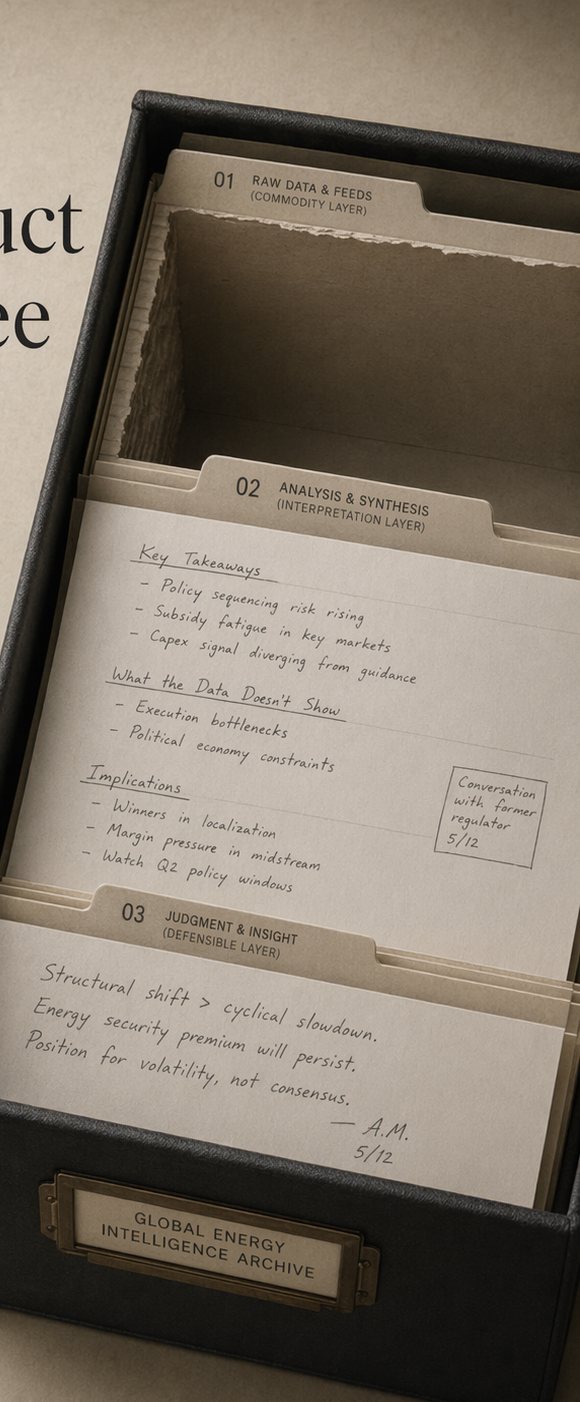 uct
ee
01 RAW DATA & FEEDS
(COMMODITY LAYER)
02 ANALYSIS & SYNTHESIS
(INTERPRETATION LAYER)
Key Takeaways
– Policy sequencing risk rising
– Subsidy fatigue in key markets
– Capex signal diverging from guidance
What the Data Doesn't Show
– Execution bottlenecks
– Political economy constraints
Implications
– Winners in localization
– Margin pressure in midstream
– Watch Q2 policy windows
Conversation
with former
regulator
5/12
03 JUDGMENT & INSIGHT
(DEFENSIBLE LAYER)
Structural shift > cyclical slowdown.
Energy security premium will persist.
Position for volatility, not consensus.
— A.M.
5/12
GLOBAL ENERGY
INTELLIGENCE ARCHIVE